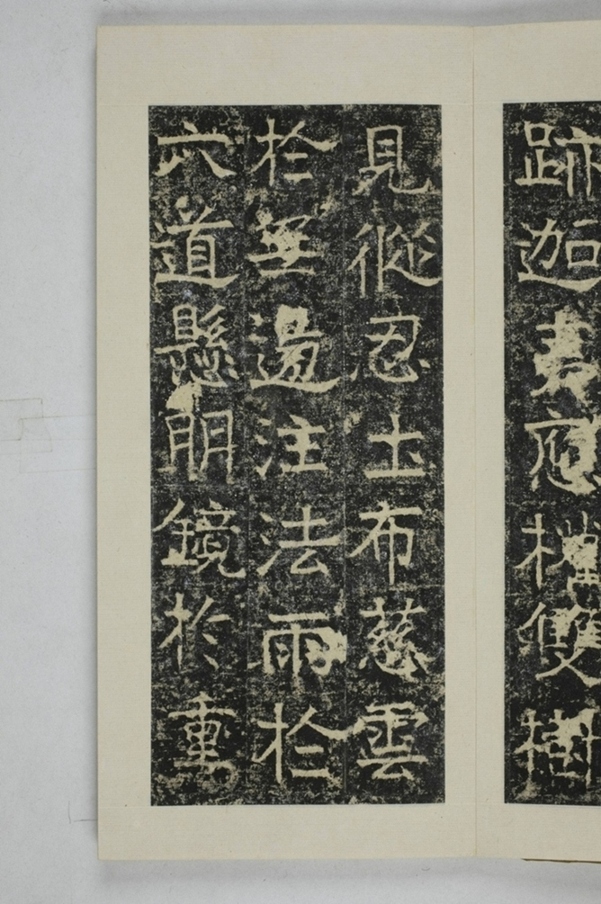 跡迦應雙樹
見從忍土布慈雲
於無邊注法雨於
六道懸明鏡於重